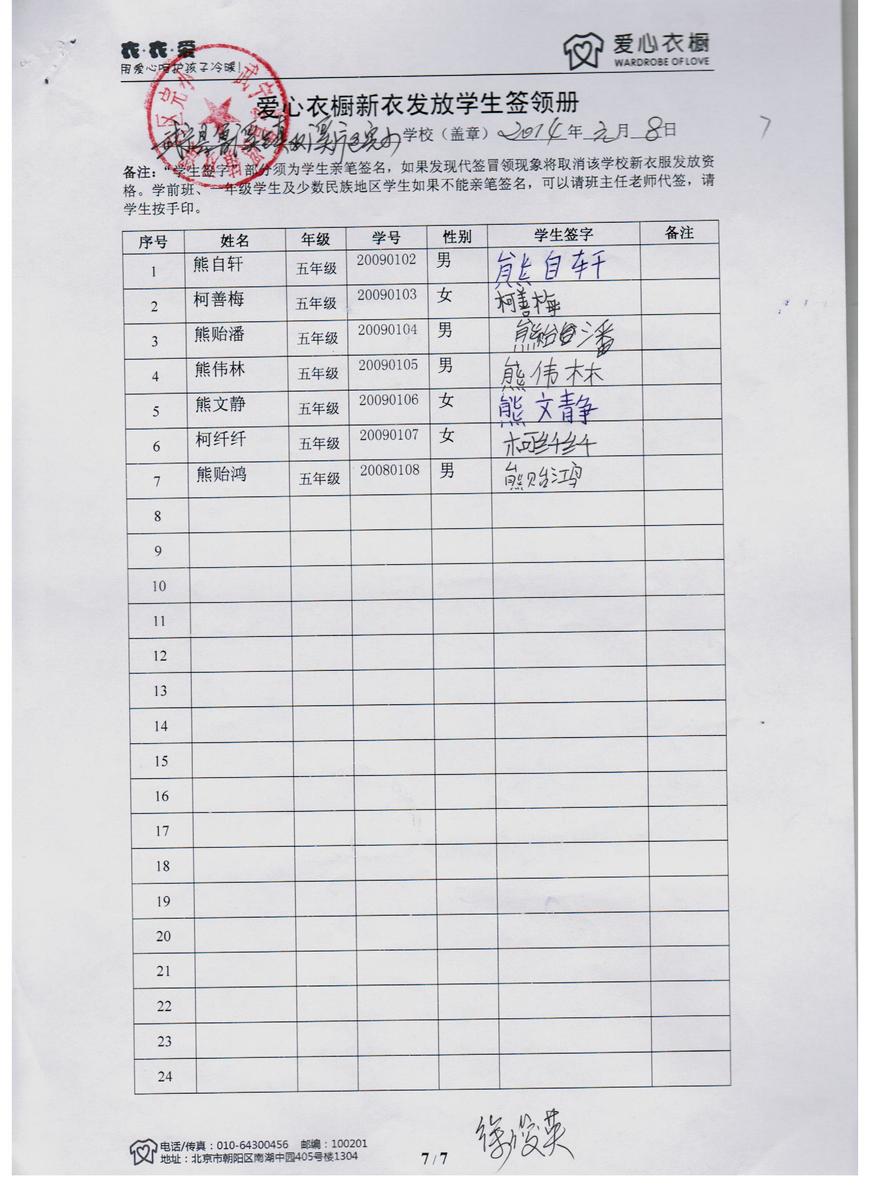 衣·衣·爱
用爱心呵护孩子冷暖!
爱心衣橱
WARDROBE OF LOVE
爱心衣橱新衣发放学生签领册
学校（盖章）2014年元月8日
7
备注：“学生签字”部分须为学生亲笔签名，如果发现代签冒领现象将取消该学校新衣服发放资
格。学前班、一年级学生及少数民族地区学生如果不能亲笔签名，可以请班主任老师代签，请
学生按手印。
序号 姓名 年级 学号 性别 学生签字 备注
1 熊自轩 五年级 20090102 男 熊自轩
2 柯善梅 五年级 20090103 女 柯善梅
3 熊贻潘 五年级 20090104 男 熊贻潘
4 熊伟林 五年级 20090105 男 熊伟林
5 熊文静 五年级 20090106 女 熊文静
6 柯纤纤 五年级 20090107 女 柯纤纤
7 熊贻鸿 五年级 20080108 男 熊贻鸿
8
9
10
11
12
13
14
15
16
17
18
19
20
21
22
23
24
电话/传真：010-64300456 邮编：100201
地址：北京市朝阳区南湖中园405号楼1304
7 / 7
徐俊英